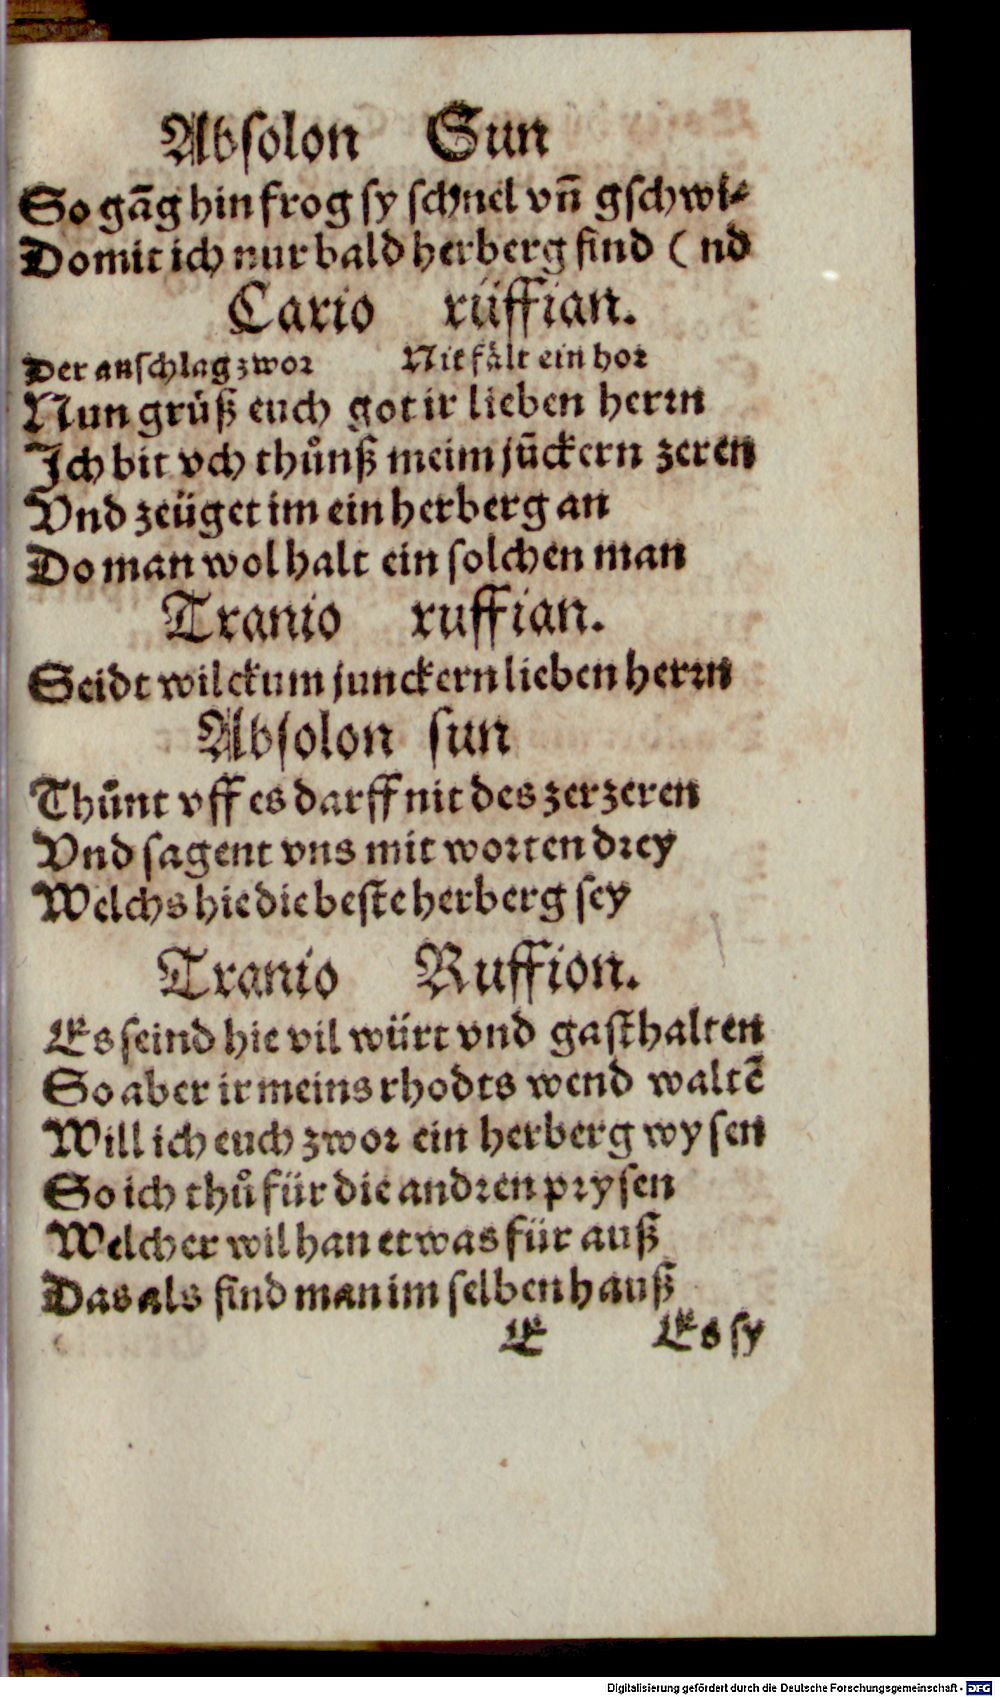 Absolon Sun
So gāg hin frog sy schnel vn̄ gschwi⸗
Domit ich nur bald herberg find ( nd
Cario rüffian.
Der anschlag zwor Nit fält ein hor
Nun grüß euch got ir lieben herrn
Ich bit vch thůnß meim jūckern zeren
Vnd zeüget im ein herberg an
Do man wol halt ein solchen man
Tranio ruffian.
Seidt wilckum junckern lieben herrn
Absolon sun
Thůnt vff es darff nit des zerzeren
Vnd sagent vns mit worten drey
Welchs hie die beste herberg sey
Tranio Ruffion.
Es seind hie vil würt vnd gasthalten
So aber ir meins rhodts wend waltē
Will ich euch zwor ein herberg wysen
So ich thů für die andren prysen
Welcher wil han etwas für auß
Das als find man im selben hauß
E Es sy
Digitalisierung gefördert durch die Deutsche Forschungsgemeinschaft - DFG